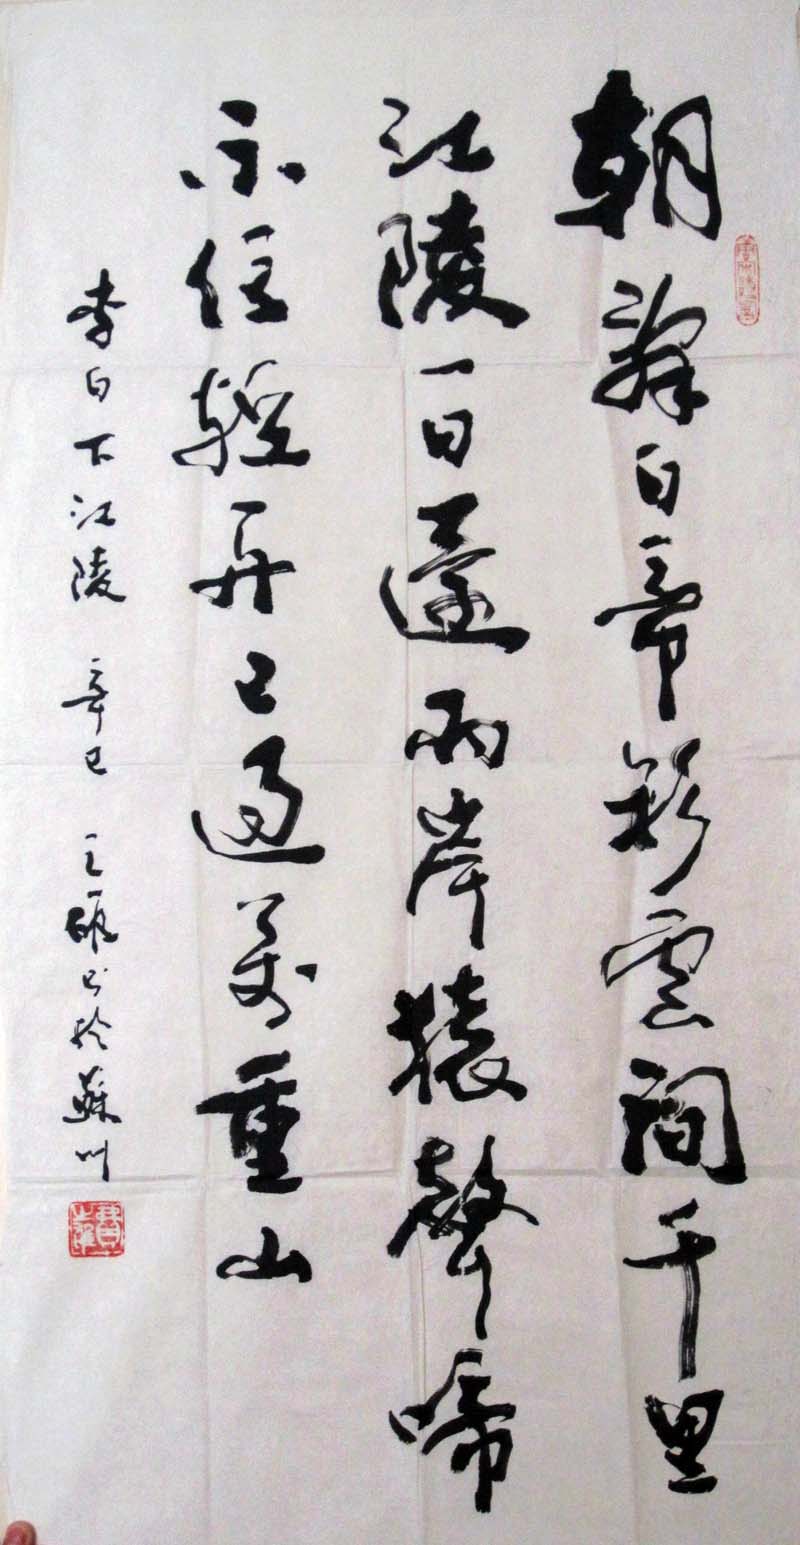 朝辭白帝彩雲間千里
江陵一日還兩岸猿聲啼
不住輕舟已過萬重山
李白下江陵 辛巳 之雄书於蘇州